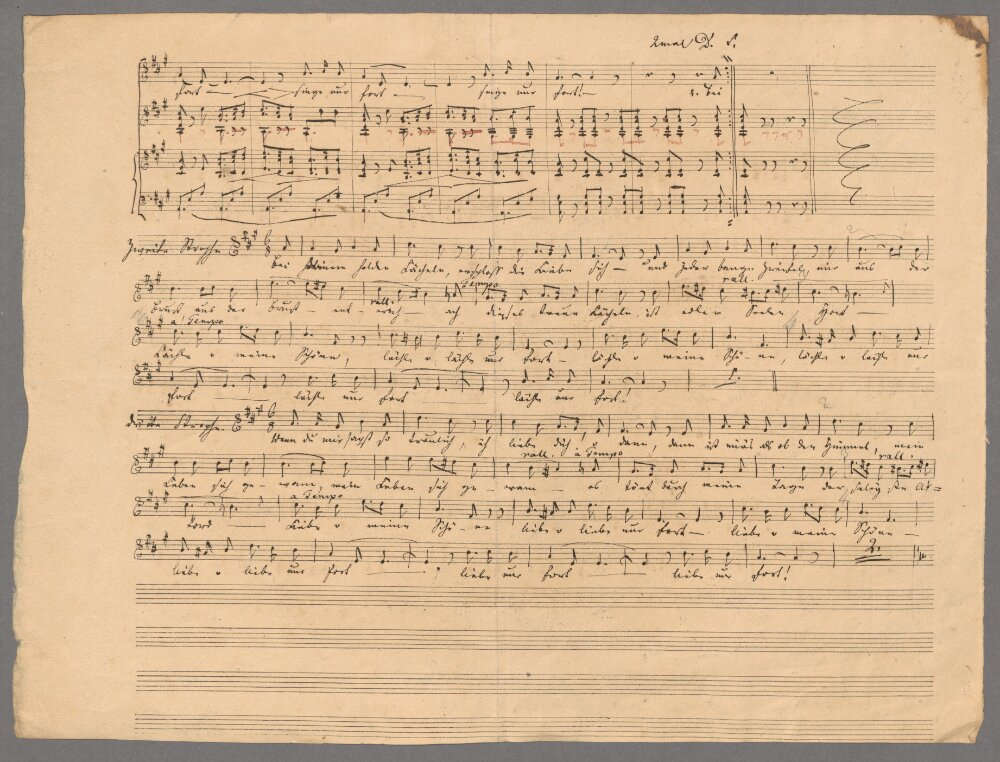 2mal D. S.
fort — singe nur fort — singe nur fort! — 2. Bei
Zweite Strophe
Bei deinem holden Lächeln, erschloss die Liebe sich — und jeder bange Zweifel, mir aus der
Tempo rall.
Brust aus der Brust — ent-wich — ach dieses Lächeln, ist edler Seelen Hort —
rall.
a Tempo
Lächle o meine Schöne, lächle o lächle nur fort — lächle o meine Schö-ne, lächle o lächle nur
fort lächle nur fort — lächle nur fort!
1.
Dritte Strophe
Wenn du mir sagst so traulich, ich liebe dich, dann, dann ist mirs als ob der Himmel, mein
rall. a Tempo rall.
Leben sich ge- mein Leben sich ge- es tönt durch meine Tage der selig-ste Ac-
a Tempo
cord — Liebe o meine Schö-ne liebe o liebe nur fort — liebe o meine Schöne —
liebe o liebe nur fort — liebe nur fort — liebe nur fort!
2.